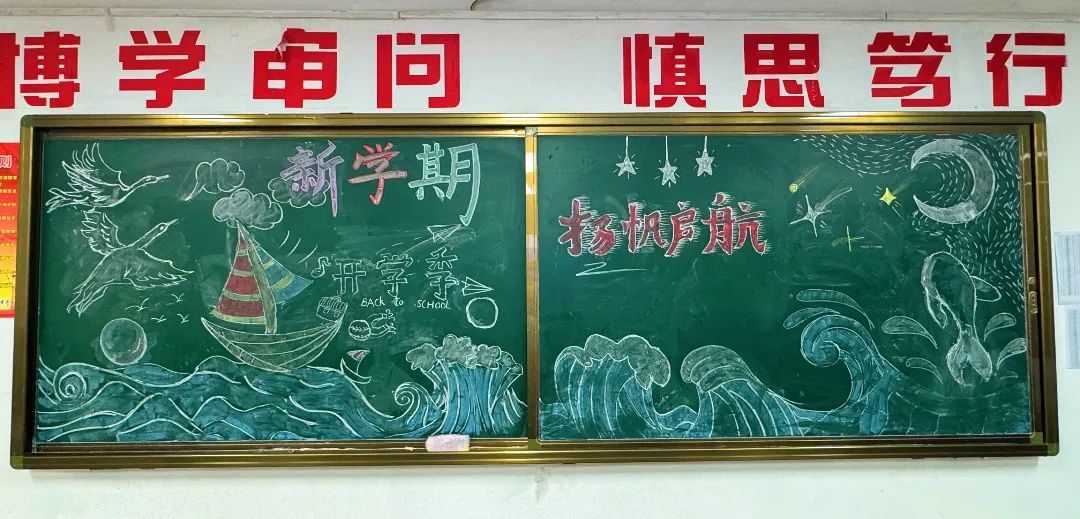 博学审问 慎思笃行
新学期
开学季
BAck to SCHOOL
扬帆启航
则